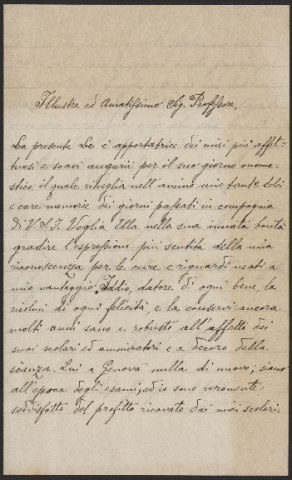 Illustre ed Amatissimo Sig. Professore,
La presente Le è apportatrice dei miei più affet-
tuosi e soavi augurii per il suo giorno onoma-
stico, il quale risveglia nell'animo mio tante dolci
e care memorie dei giorni passati in compagnia
di V. S. I. Voglia Ella nella sua innata bontà
gradire l'espressione più sentita della mia
riconoscenza per le cure e riguardi usati a
mio vantaggio. Iddio, datore di ogni bene, la
ricolmi di ogni felicità, e la conservi ancora
molti anni sano e robusto all'affetto dei
suoi scolari ed ammiratori e a decoro della
scienza. Qui a Genova nulla di nuovo; siamo
all'epoca degli esami, ed io sono veramente
soddisfatto del profitto ricavato dai miei scolari.